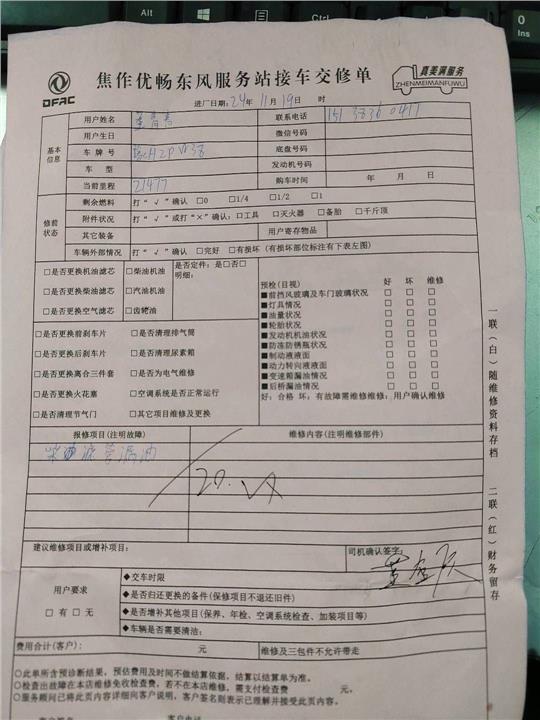 Alt
Ctrl
0
Ins
DFAC
焦作优畅东风服务站接车交修单
真美满服务
ZHENMEIMANFUWU
进厂日期: 24年 11月 19日 时
基本信息
用户姓名
联系电话
用户生日 微信号码
车牌号 底盘号码
车型 发动机号码
当前里程 21477 购车时间 年 月 日
修前状态
剩余燃料 打“√”确认 □0 □1/4 □1/2 □1
附件状况 打“√”或打“×”确认: □工具 □灭火器 □备胎 □千斤顶
其它装备 用户寄存物品
车辆外部情况 打“√”确认 □完好 □有损坏（有损坏部位标注有下表左图）
□是否更换机油滤芯 □柴油机油
□是否更换柴油滤芯 □汽油机油
□是否更换空气滤芯 □齿轮油
是否定件: 是□否□
明细:
□是否更换前刹车片 □是否清理排气筒
□是否更换后刹车片 □是否清理尿素箱
□是否更换离合三件套 □是否为电气维修
□是否更换火花塞 □空调系统是否正常运行
□是否清理节气门 □其它项目维修及更换
预检(目视) 好 坏 维修
■前挡风玻璃及车门玻璃状况 □ □ □
■灯具情况 □ □ □
■油量状况 □ □ □
■轮胎状况 □ □ □
■发动机机油状况 □ □ □
■防冻防锈瓶状况 □ □ □
■制动液液面 □ □ □
■动力转向液液面 □ □ □
■变速箱漏油情况 □ □ □
■后桥漏油情况 □ □ □
好: 合格 坏: 有故障需维修维修: 用户确认维修
报修项目(注明故障) 维修内容(注明维修部件)
漏油
建议维修项目或增补项目:
司机确认签字:
用户要求
□ 有 □ 无
◆交车时限
◆是否归还更换的备件(保修项目不退还旧件)
◆是否增补其他项目(保养、年检、空调系统检查、加装项目等)
◆车辆是否需要清油:
费用合计(客户): 元 维修及三包件不允许带走
○此单所含预诊断结果, 预估费用及时间不做结算依据, 结算以结算单为准。
○检查出故障在本店维修免收检查费, 若不在本店维修, 需支付检查费 元。
○服务顾问已将此页内容详细向客户说明, 客户签名则表示已理解并接受此页内容。
客户电话
一联(白)随维修资料存档 二联(红)财务留存